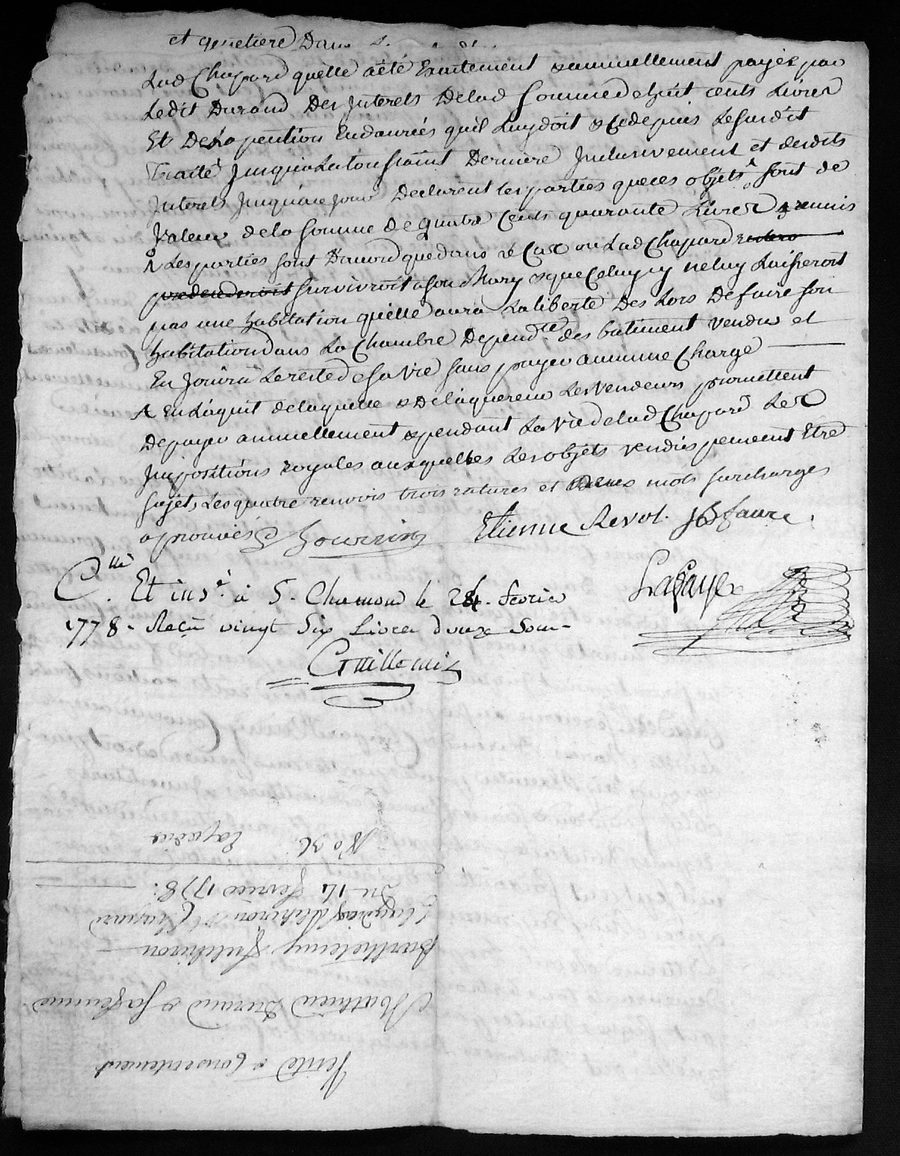 et
Lad Chapard qu'elle a été Exactement & annuellement payée par
Ledit Durand Des Interets Delad somme de huit cents Livres
Et De la pention Endanrées qu'il Luy doit & ce depuis Le susdit
Traité Jusqu'a La tousSaint Derniere Inclusivement et desdits
Interets Jusqu'a ce jour Declarent les parties que ces objets sont de
Valeur de la somme De quatre Cents quarante Livres
Les parties sont Daccord que dans Le Cas ou Lad Chapard
survivroit a son Mary & que Celuy cy ne luy Laisseroit
pas une habitation qu'elle aura La liberté Des Lors De faire son
habitation dans La Chambre Dependte des batiment vendu et
En Jouira Le reste de sa vie sans payer aucunne Charge
En L'aquit delaquelle & De l'aquereur Les vendeurs promettent
De payer annuellement & pendant La vie delad Chapard Les
Impositions royales auxquelles Les objets vendus peuvent Etre
sujets Les quatre renvois trois ratures et mots surchargés
aprouvés
Etienne Revol. JBfaure.
Clle. Et insé à S. Chamond le 24. fevrier
1778. Reçu vingt Six Livres douze Sous
Guillemin
Lafaye
Vente & Consentement
Mathieu Durand & sa femme
Barthelemy
Chapard
Du 14 fevrier 1778.
No